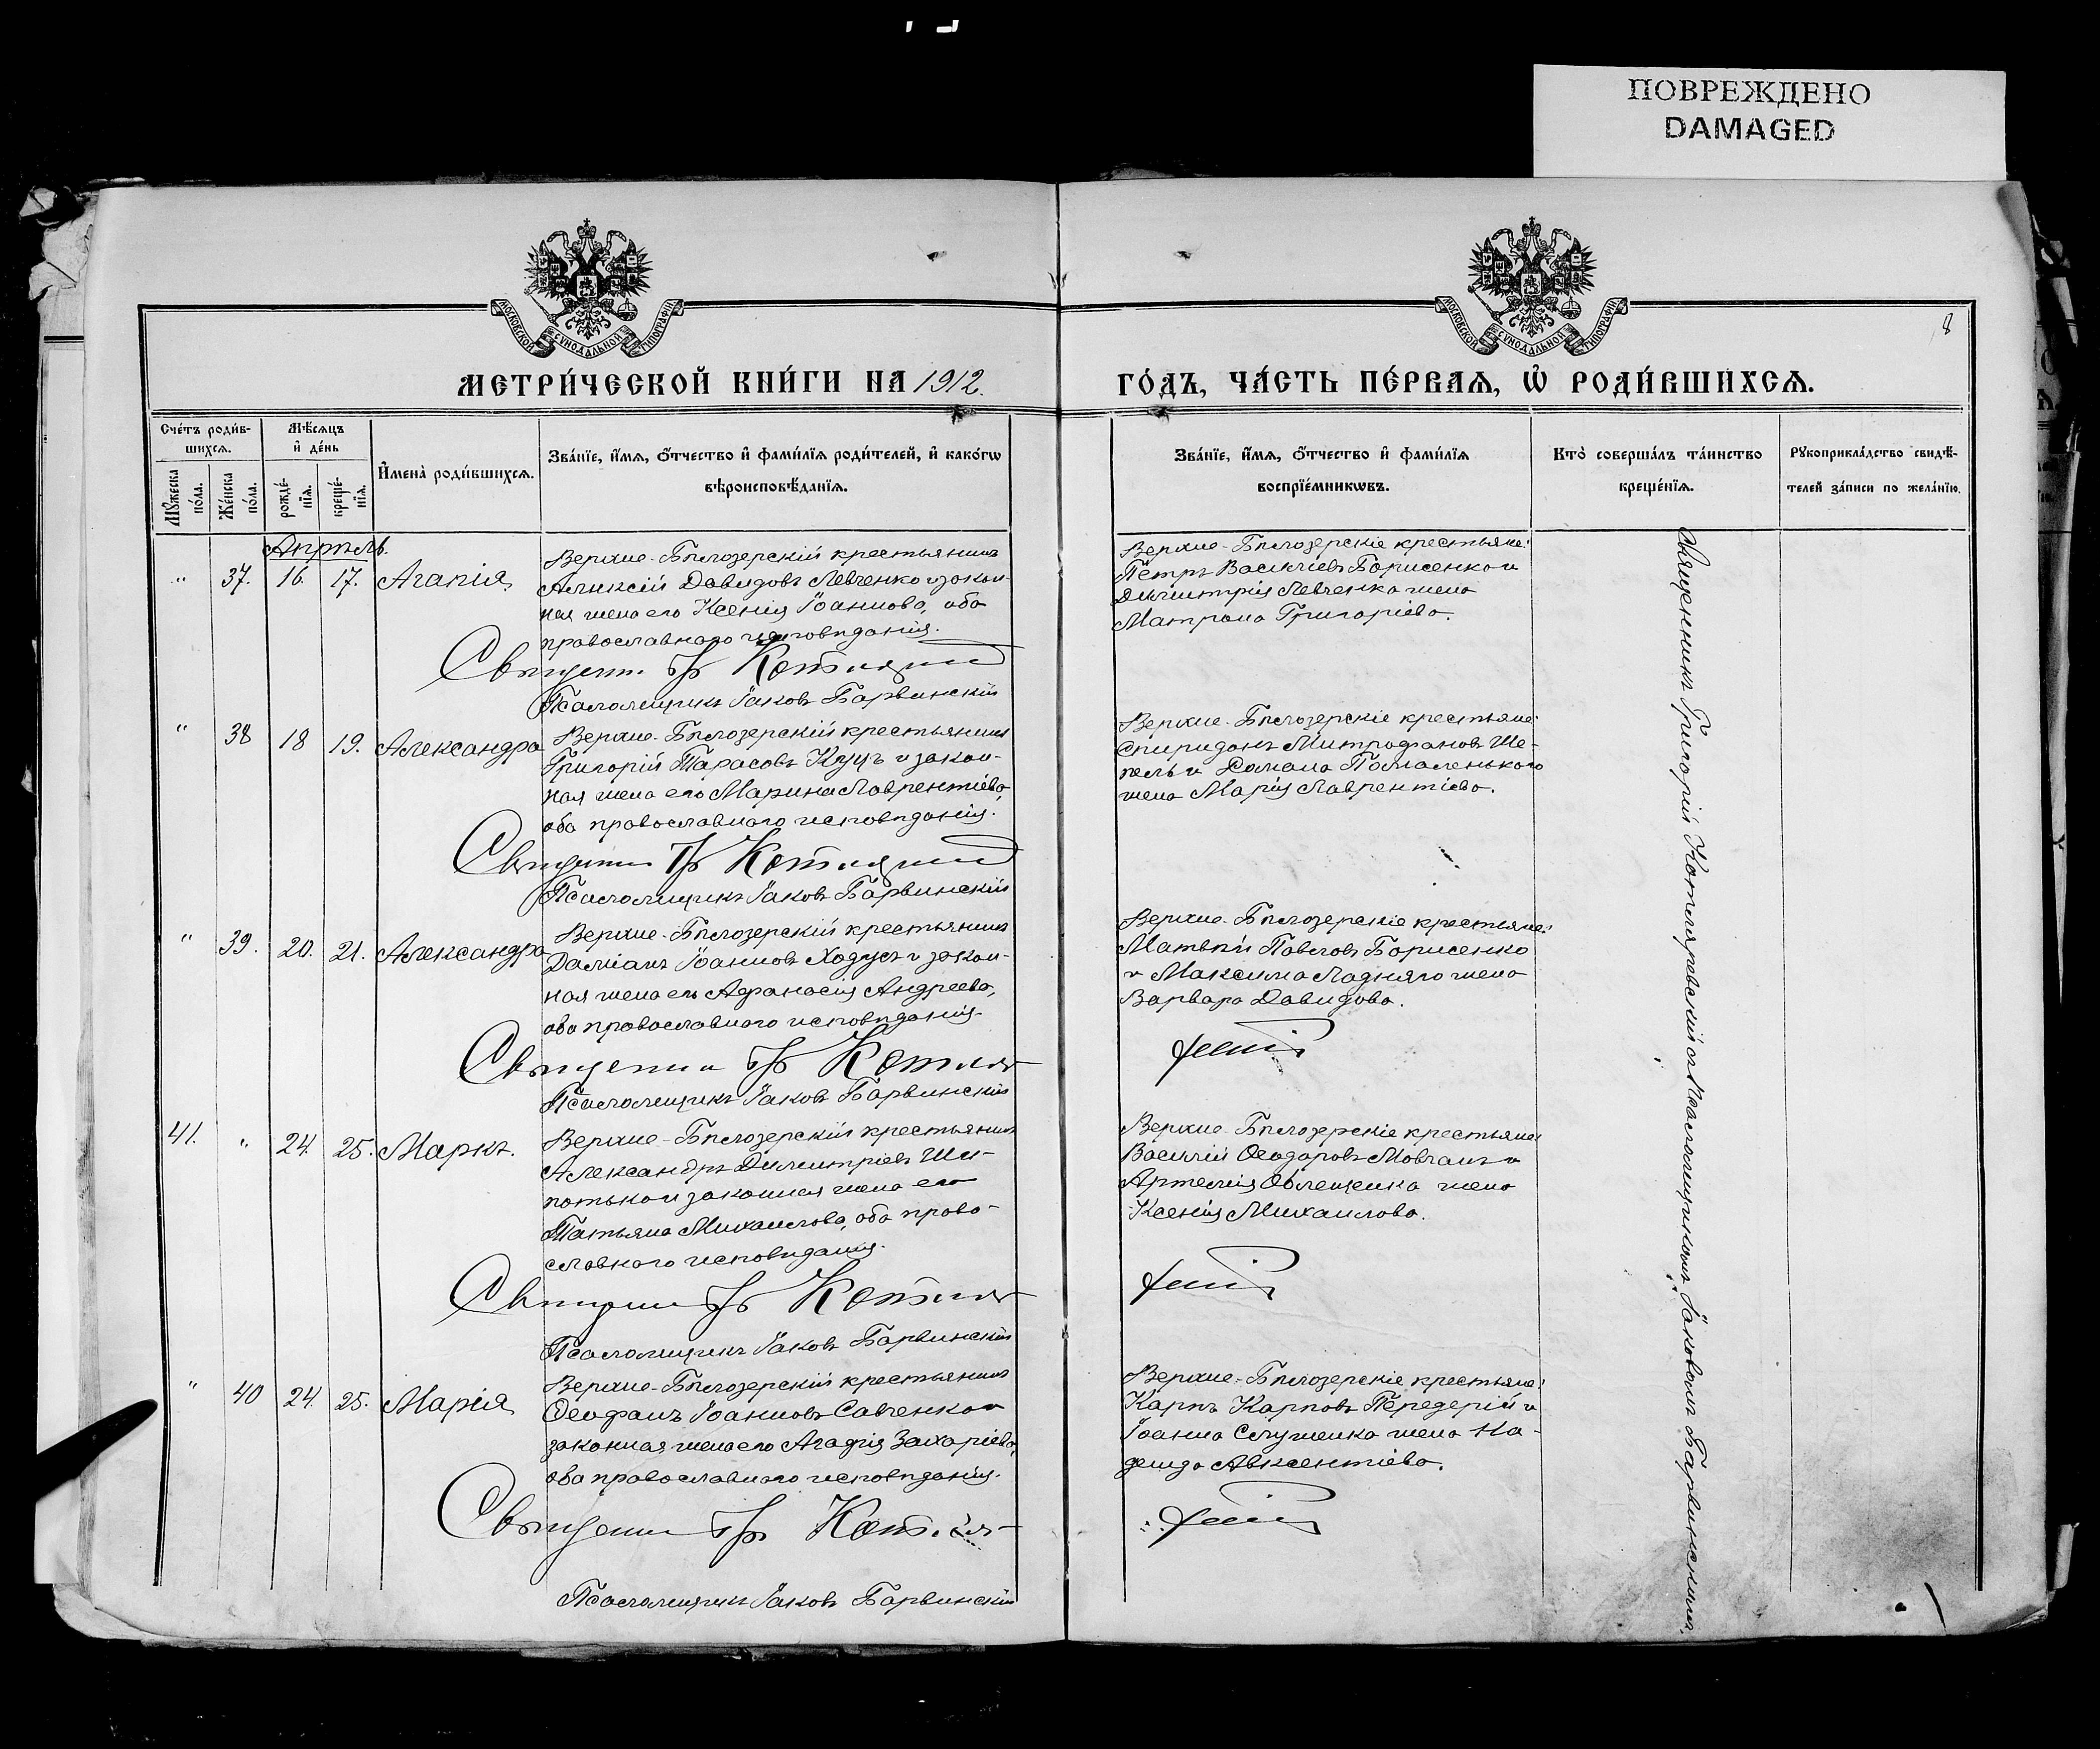 ПОВРЕЖДЕНО
DAMAGED
МОСКОВСКОЙ СѴНОДАЛЬНОЙ ТИПОГРАФІИ
МОСКОВСКОЙ СѴНОДАЛЬНОЙ ТИПОГРАФІИ
8
МЕТРИ́ЧЕСКОЙ КНИ́ГИ НА 1912.
ГО́ДЪ, ЧА́СТЬ ПЕ́РВАѦ, Ѡ҆ РОДИ́ВШИХСѦ.
Сче́тъ роди́в-
шихсѧ.
Мꙋ́жеска по́ла.
Же́нска по́ла.
Мѣ́сѧцъ
и҆ де́нь
рожде́-
нїѧ.
креще́-
нїѧ.
И҆мена̀ роди́вшихсѧ.
Зва́нїе, и҆́мѧ, ѻ҆́тчество и҆ фами́лїѧ роди́телей, и҆ како́гѡ
вѣроисповѣ́данїѧ.
Зва́нїе, и҆́мѧ, ѻ҆́тчество и҆ фами́лїѧ
воспрїе́мникѡвъ.
Кто̀ соверша́лъ та́инство
креще́нїѧ.
Рꙋкоприкла́дство свидѣ́-
телей за́писи по жела́нїю.
Апрѣль.
" 37. 16. 17. Агапія
Верхне-Бѣлозерскій крестьянинъ
Алексій Давидовъ Левченко и закон-
ная жена его Ксенія Іоаннова, оба
православнаго исповѣданія.
Священ. Гр Котляр
Псаломщикъ Іаковъ Барвинскій
Верхне-Бѣлозерскіе крестьяне:
Петръ Василіевъ Борисенко и
Димитрія Левченка жена
Матрона Григоріева.
" 38 18 19. Александра
Верхне-Бѣлозерскій крестьянинъ
Григорій Тарасовъ Куцъ и закон-
ная жена его Марина Лаврентіева,
оба православнаго исповѣданія.
Священ Гр Котляр
Псаломщикъ Іаковъ Барвинскій
Верхне-Бѣлозерскіе крестьяне:
Спиридонъ Митрофановъ Ше-
пель и Романа Помаленького
жена Марія Лаврентіева.
" 39. 20. 21. Александра
Верхне-Бѣлозерскій крестьянинъ
Даміанъ Іоанновъ Ходусъ и закон-
ная жена его Афанасія Андреева,
оба православнаго исповѣданія.
Священ Гр Котляр
Псаломщикъ Іаковъ Барвинскій
Верхне-Бѣлозерскіе крестьяне:
Матвѣй Павловъ Борисенко
и Максима Ладняго жена
Варвара Давидова.
41. " 24. 25. Маркъ.
Верхне-Бѣлозерскій крестьянинъ
Александръ Димитріевъ Ши-
потько и законная жена его
Татьяна Михаилова, оба право-
славнаго исповѣданія.
Священ Гр Котляр
Псаломщикъ Іаковъ Барвинскій
Верхне-Бѣлозерскіе крестьяне:
Василій Ѳеодоровъ Мовчанъ и
Артемія Облещенка жена
Ксенія Михаилова.
" 40 24. 25. Марія
Верхне-Бѣлозерскій крестьянинъ
Ѳеофанъ Іоанновъ Савченко и
законная жена его Агафія Захаріева,
оба православнаго исповѣданія.
Священ Гр Котля
Псаломщикъ Іаковъ Барвинскій
Верхне-Бѣлозерскіе крестьяне:
Карпъ Карповъ Передерій и
Іоанна Слушенка жена На-
дежда Авксентіева.
Священникъ Григорій Котляревскій съ Псаломщикомъ Іаковомъ Барвинскимъ.